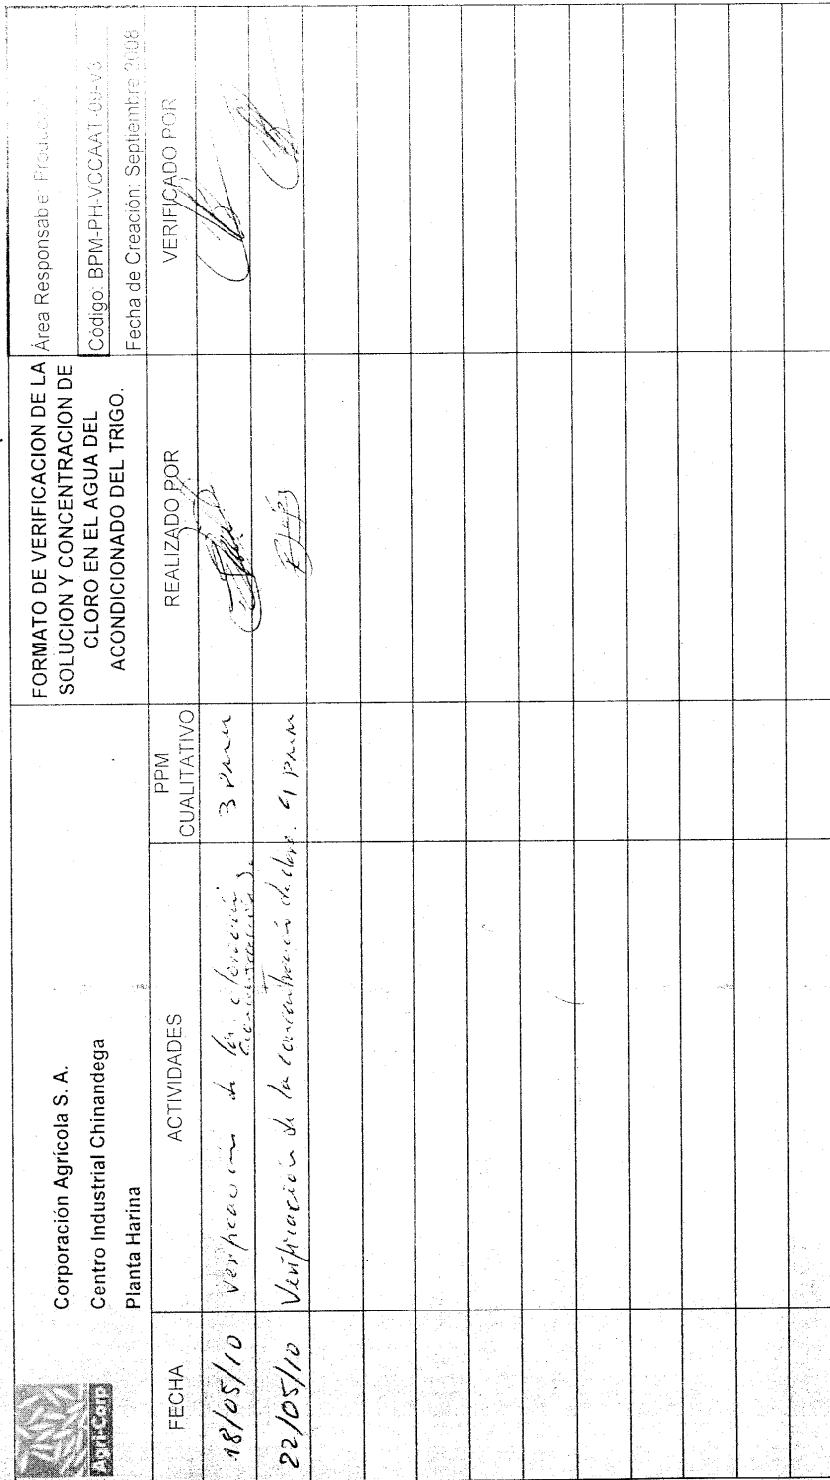 Agri-Corp
Corporación Agrícola S. A.
Centro Industrial Chinandega
Planta Harina
FORMATO DE VERIFICACION DE LA
SOLUCION Y CONCENTRACION DE
CLORO EN EL AGUA DEL
ACONDICIONADO DEL TRIGO.
Área Responsable: Producción
Código: BPM-PH-VCCAAT-09-V3
Fecha de Creación: Septiembre 2008
FECHA ACTIVIDADES PPM CUALITATIVO REALIZADO POR VERIFICADO POR
18/05/10 Verificación de la 3 ppm
22/05/10 Verificación de la concentración de cloro. 4 ppm